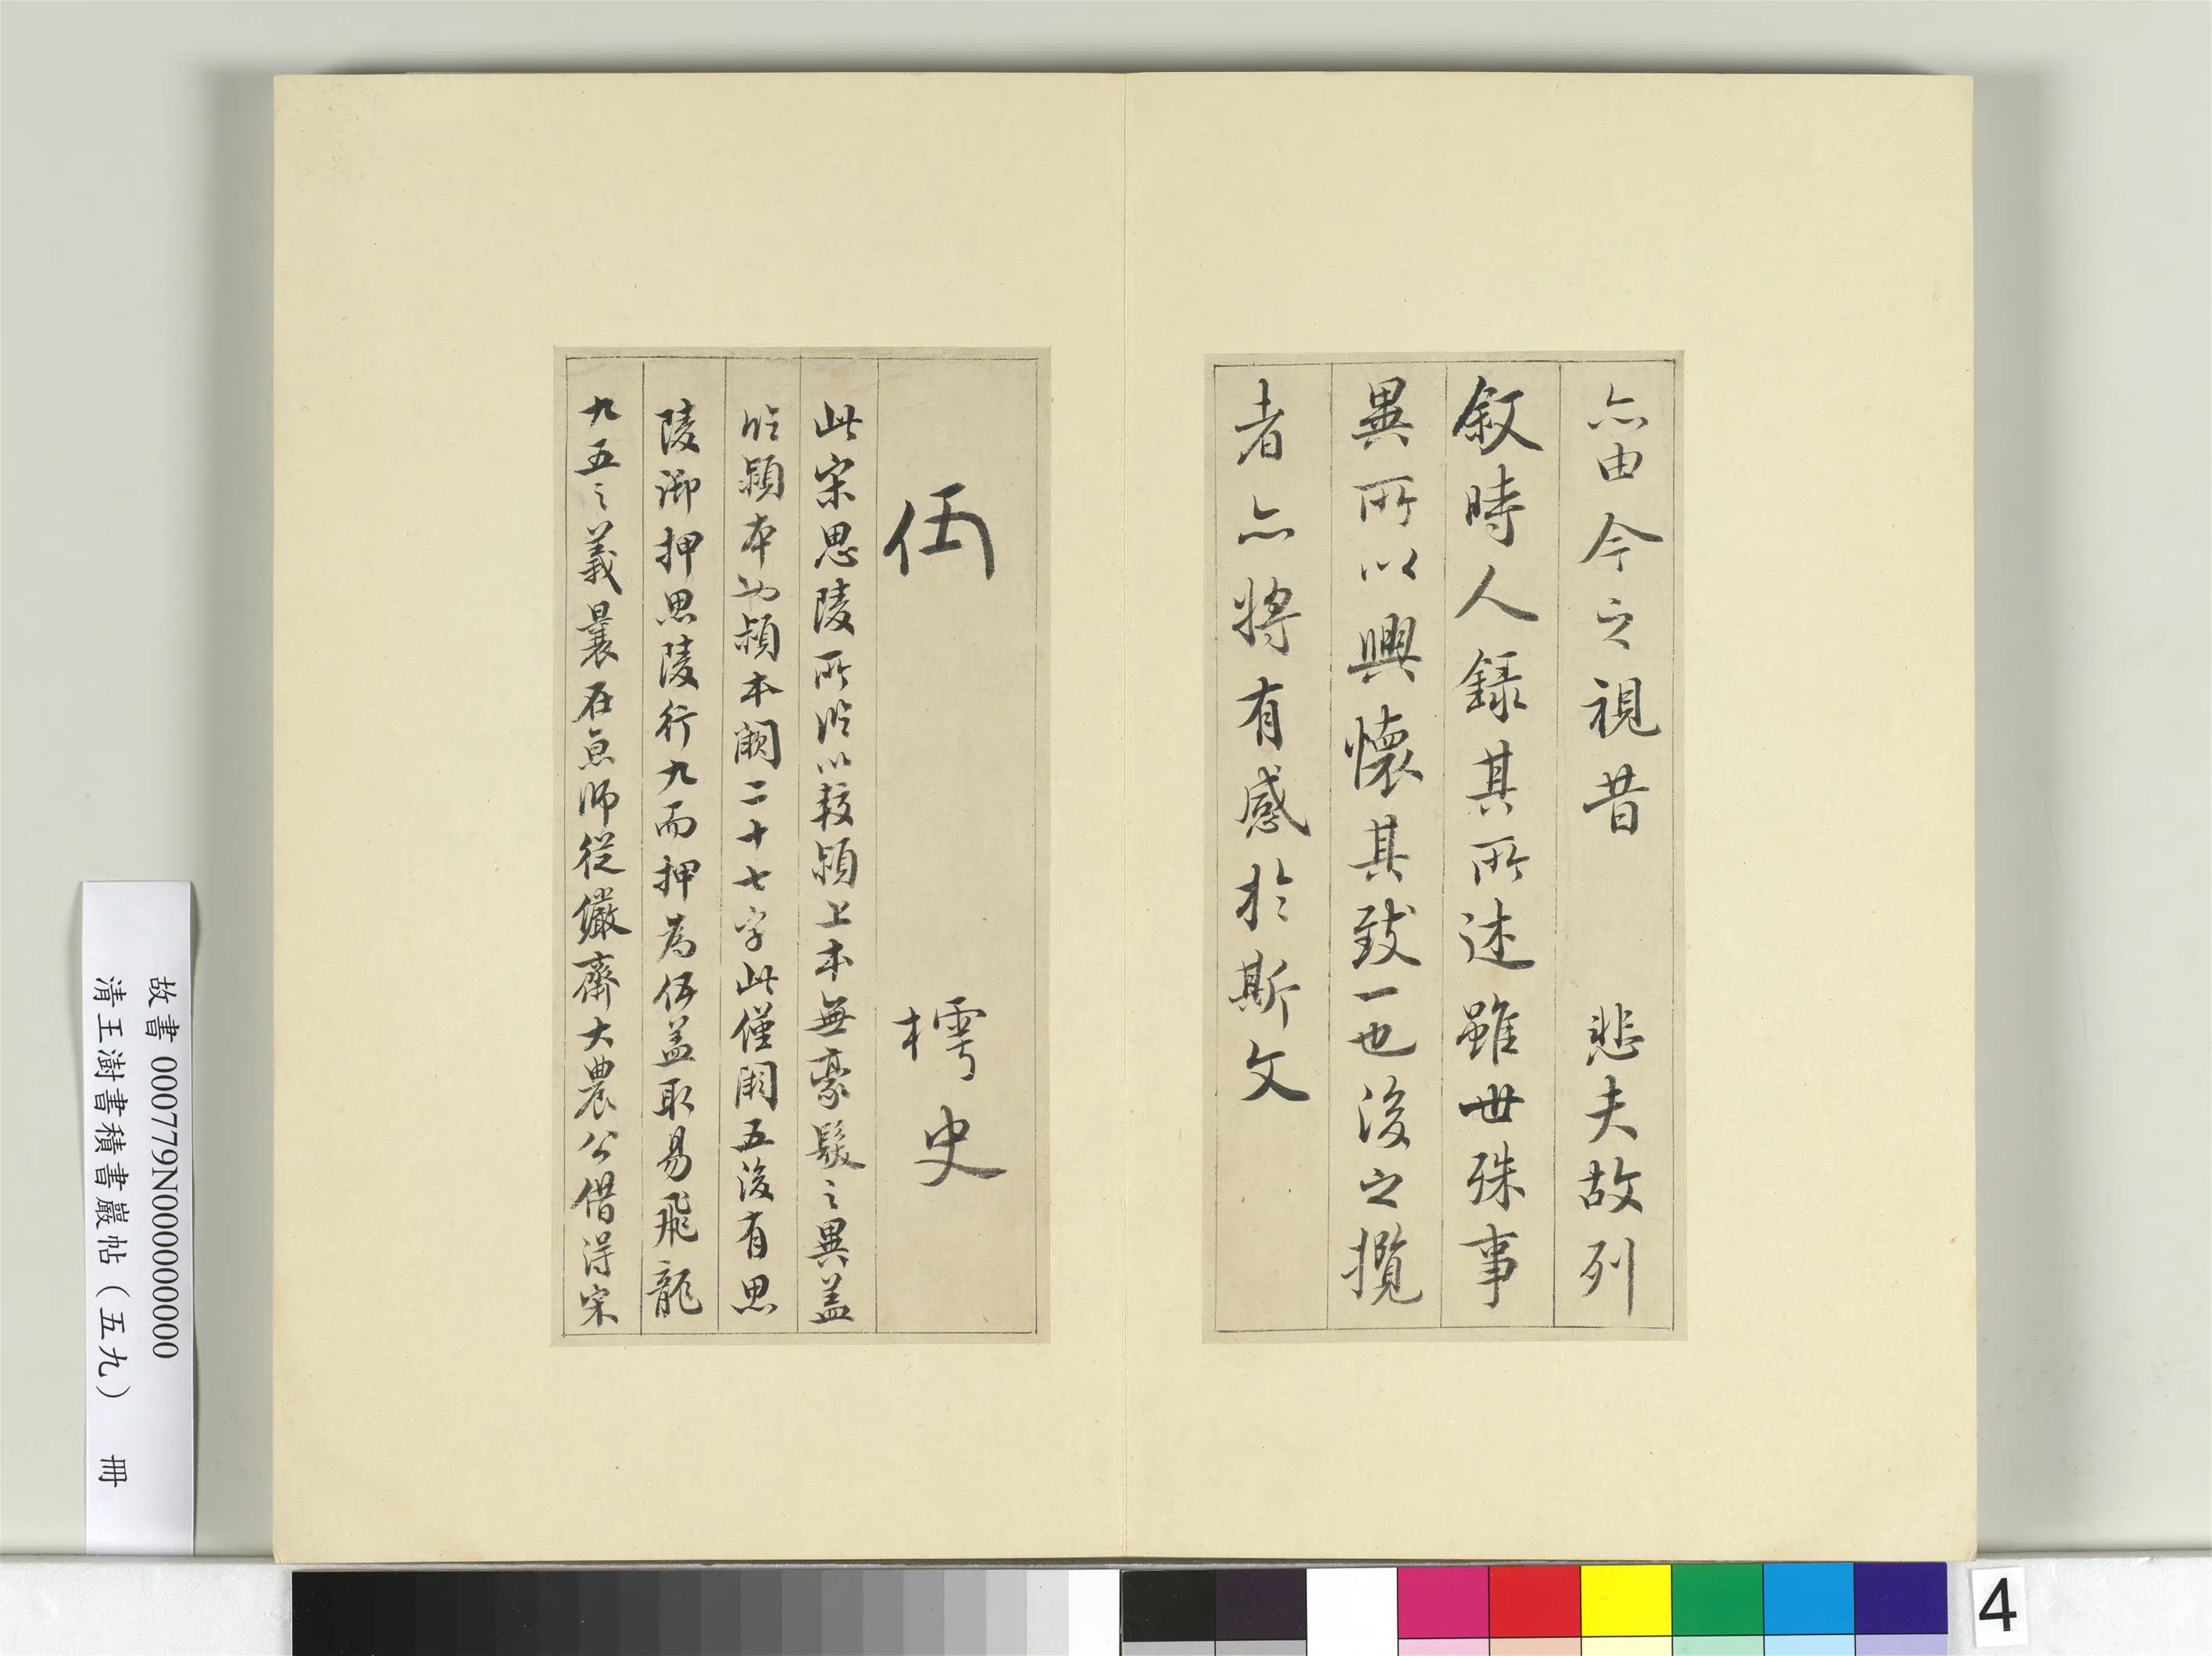 亦由今之視昔 悲夫故列
叙時人錄其所述雖世殊事
異所以興懷其致一也後之攬
者亦將有感於斯文
伍 樗史
此宋思陵所臨以較潁上本無豪髮之異蓋
臨潁本也潁本闕二十七字此僅闕五後有思
陵御押思陵行九而押為伍蓋取易飛龍
九五之義曩在京師從儼齋大農公借得宋
故書 000779N000000000
清王澍書積書巖帖（五九） 冊
4